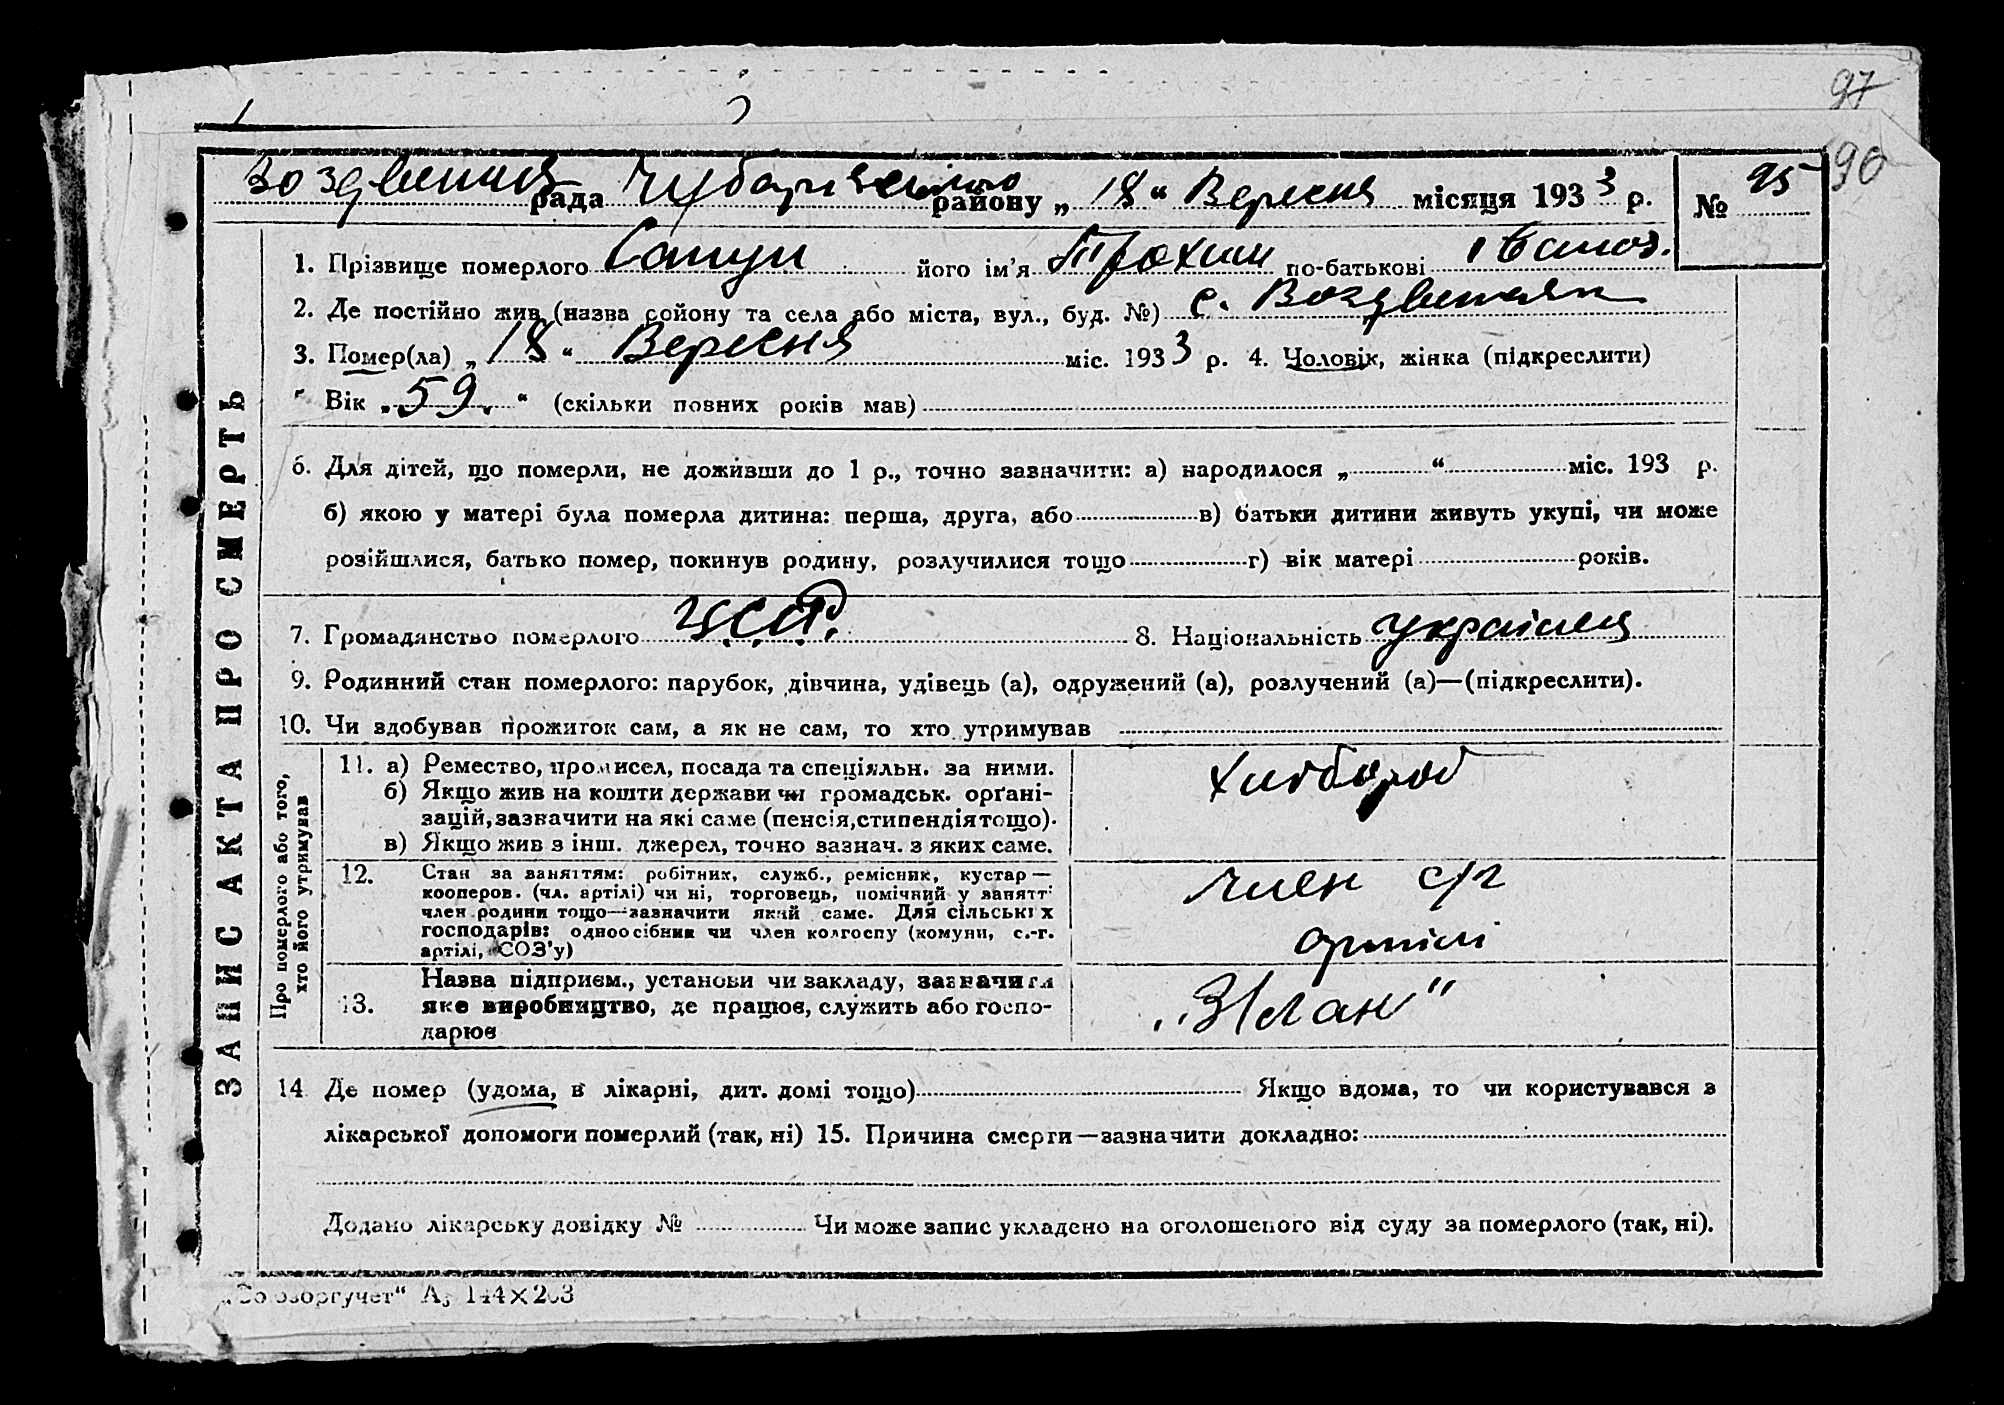 97
90
Воздвениса рада Чубарівського району „ 18 “ Вересня місяця 1933 р. № 95
1. Прізвище померлого Сапун його ім’я Трохим по-батькові Іванов.
2. Де постійно жив (назва району та села або міста, вул., буд. №) с. Воздвениськ
3. Помер(ла) „ 18 “ Вересня міс. 1933 р. 4. Чоловік, жінка (підкреслити)
Вік „ 59. “ (скільки повних років мав)
6. Для дітей, що померли, не доживши до 1 р., точно зазначити: а) народилося „ “ міс. 193 р.
б) якою у матері була померла дитина: перша, друга, або в) батьки дитини живуть укупі, чи може
розійшлися, батько помер, покинув родину, розлучилися тощо г) вік матері років.
7. Громадянство померлого У.С.С.Р. 8. Національність українец
9. Родинний стан померлого: парубок, дівчина, удівець (а), одружений (а), розлучений (а)—(підкреслити).
10. Чи здобував прожиток сам, а як не сам, то хто утримував
Про померлого або того, хто його утримував
11. а) Ремество, промисел, посада та спеціяльн. за ними. Хлібороб
б) Якщо жив на кошти держави чи громадськ. орґані-
зацій, зазначити на які саме (пенсія, стипендія тощо).
в) Якщо жив з інш. джерел, точно зазнач. з яких саме.
12. Стан за заняттям: робітник, служб., ремісник, кустар—
кооперов. (чл. артілі) чи ні, торговець, помічний у занятт
член родини тощо—зазначити який саме. Для сільських
господарів: одноосібник чи член колгоспу (комуни, с.-г.
артілі, СОЗ’у)
член с/г
артілі
Назва підприєм., установи чи закладу, зазначити
13. яке виробництво, де працює, служить або госпо-
дарює
„Злан“
14 Де помер (удома, в лікарні, дит. домі тощо) Якщо вдома, то чи користувався з
лікарської допомоги померлий (так, ні) 15. Причина смерти—зазначити докладно:
Додано лікарську довідку № Чи може запис укладено на оголошеного від суду за померлого (так, ні).
ЗАПИС АКТА ПРО СМЕРТЬ
„Союзоргучет“ А5 144×203